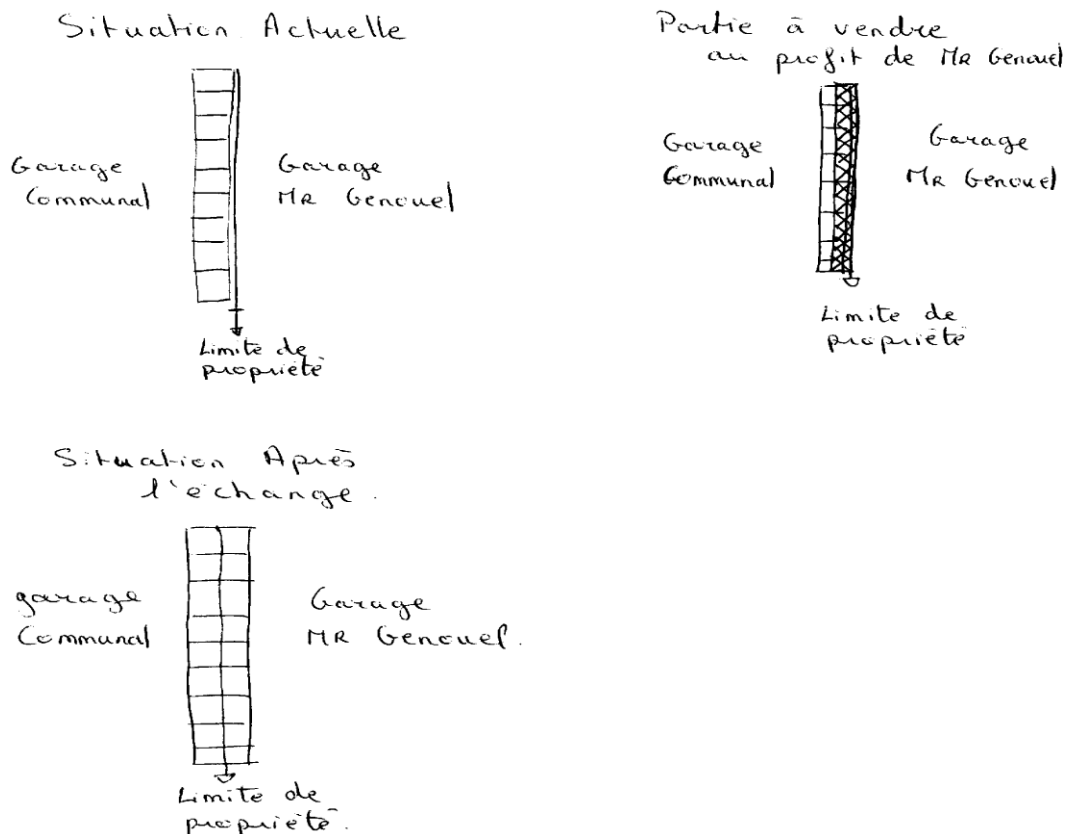 Situation Actuelle
Garage
Communal
Garage
MR Genouel
Limite de
propriété
Partie à vendre
au profit de MR Genouel
Garage
Communal
Garage
MR Genouel
Limite de
propriété
Situation Après
l'échange.
garage
Communal
Garage
MR Genouel.
Limite de
propriété.